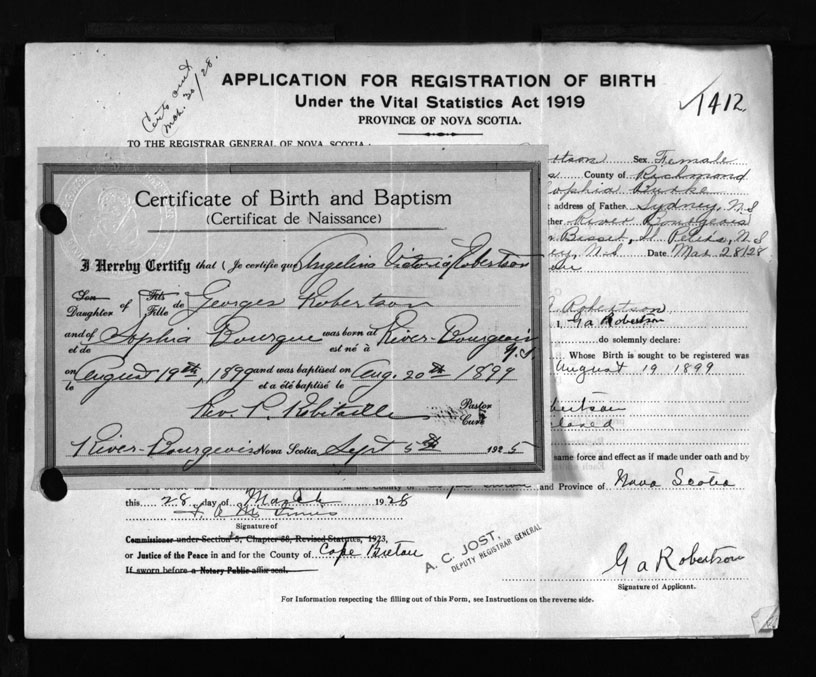 Certs out
Mch. 20/28.
APPLICATION FOR REGISTRATION OF BIRTH
Under the Vital Statistics Act 1919
PROVINCE OF NOVA SCOTIA.
1412
TO THE REGISTRAR GENERAL OF NOVA SCOTIA:
Sex Female
County of Richmond
Sophia Burke
address of Father Sydney, N.S
River Bourgeois
Bisset, St. Peters, N.S
N.S Date Mar 28/28
Certificate of Birth and Baptism
(Certificat de Naissance)
I Hereby Certify that (Je certifie que Angelina Victoria Robertson
Son
Daughter of Fils
Fille de Georges Robertson
and of
et de Sophia Bourque was born at
est né à River-Bourgeois
N.S.
on
le August 19th, 1899 and was baptised on
et a été baptisé le Aug. 20th 1899
Rev. P. Robitaille Pastor
Curé
River-Bourgeois Nova Scotia, Sept 5th 1925
Robertson
I, G a Robertson
do solemnly declare:
Whose Birth is sought to be registered was
August 19 1899
same force and effect as if made under oath and by
and Province of Nova Scotia
this 28 day of March 1928
Signature of
Commissioner under Section 5, Chapter 38, Revised Statutes, 1923,
or Justice of the Peace in and for the County of Cape Breton
If sworn before a Notary Public affix seal.
A. C. JOST,
DEPUTY REGISTRAR GENERAL
G a Robertson
Signature of Applicant.
For Information respecting the filling out of this Form, see Instructions on the reverse side.